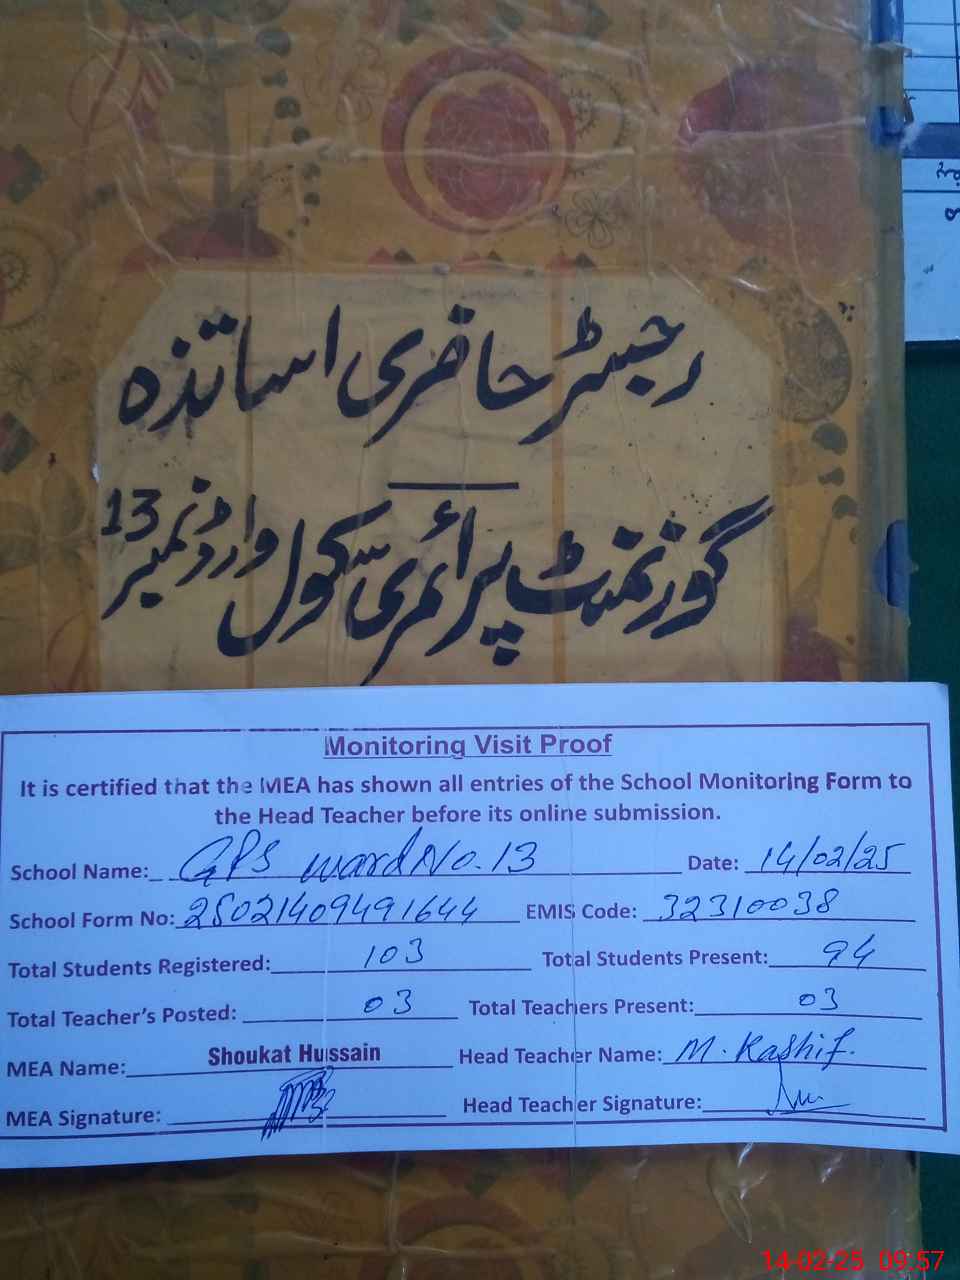 رجسٹر حاضری اساتذہ
گورنمنٹ پرائمری سکول وارڈ نمبر 13
Monitoring Visit Proof
It is certified that the MEA has shown all entries of the School Monitoring Form to
the Head Teacher before its online submission.
School Name: GPS ward No. 13 Date: 14/02/25
School Form No: 25021409491644 EMIS Code: 32310038
Total Students Registered: 103 Total Students Present: 94
Total Teacher's Posted: 03 Total Teachers Present: 03
MEA Name: Shoukat Hussain Head Teacher Name: M. Kashif.
MEA Signature: Head Teacher Signature:
14-02-25 09:57